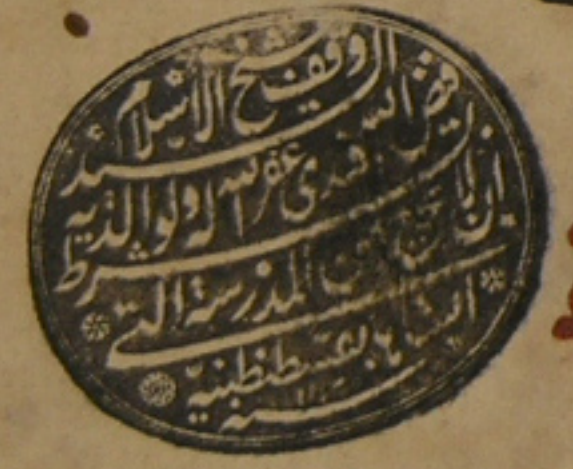 وقف شيخ الاسلام
السيد فيض الله
افندى غفر الله له ولوالديه
بشرط ان لا
يخرج من المدرسة التى
انشاها بقسطنطنية
سنه